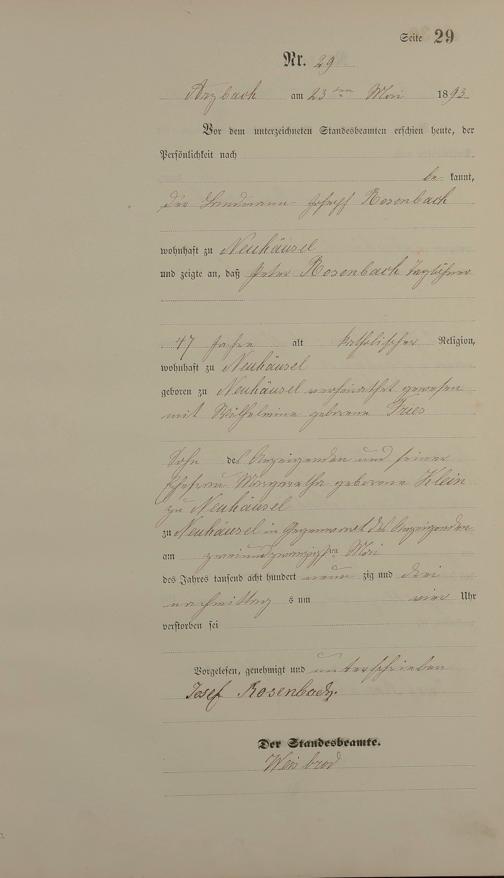 Seite 29
Nr. 29
Arzbach am 23ten Mai 1893
Vor dem unterzeichneten Standesbeamten erschien heute, der
Persönlichkeit nach
be kannt,
der Landmann Joseph Rosenbach
wohnhaft zu Neuhäusel
und zeigte an, daß Peter Rosenbach Taglöhner
47 Jahre alt katholischer Religion,
wohnhaft zu Neuhäusel
geboren zu Neuhäusel verheirathet gewesen
mit Wilhelmine geborene Fries
Sohn des Anzeigenden und seiner
Ehefrau Margaretha geborene Klein
zu Neuhäusel
zu Neuhäusel in Gegenwart des Anzeigenden
am zweiundzwanzigsten Mai
des Jahres tausend acht hundert neun zig und drei
nachmittag s um vier Uhr
verstorben sei
Vorgelesen, genehmigt und unterschrieben
Josef Rosenbach.
Der Standesbeamte.
Weinbrod